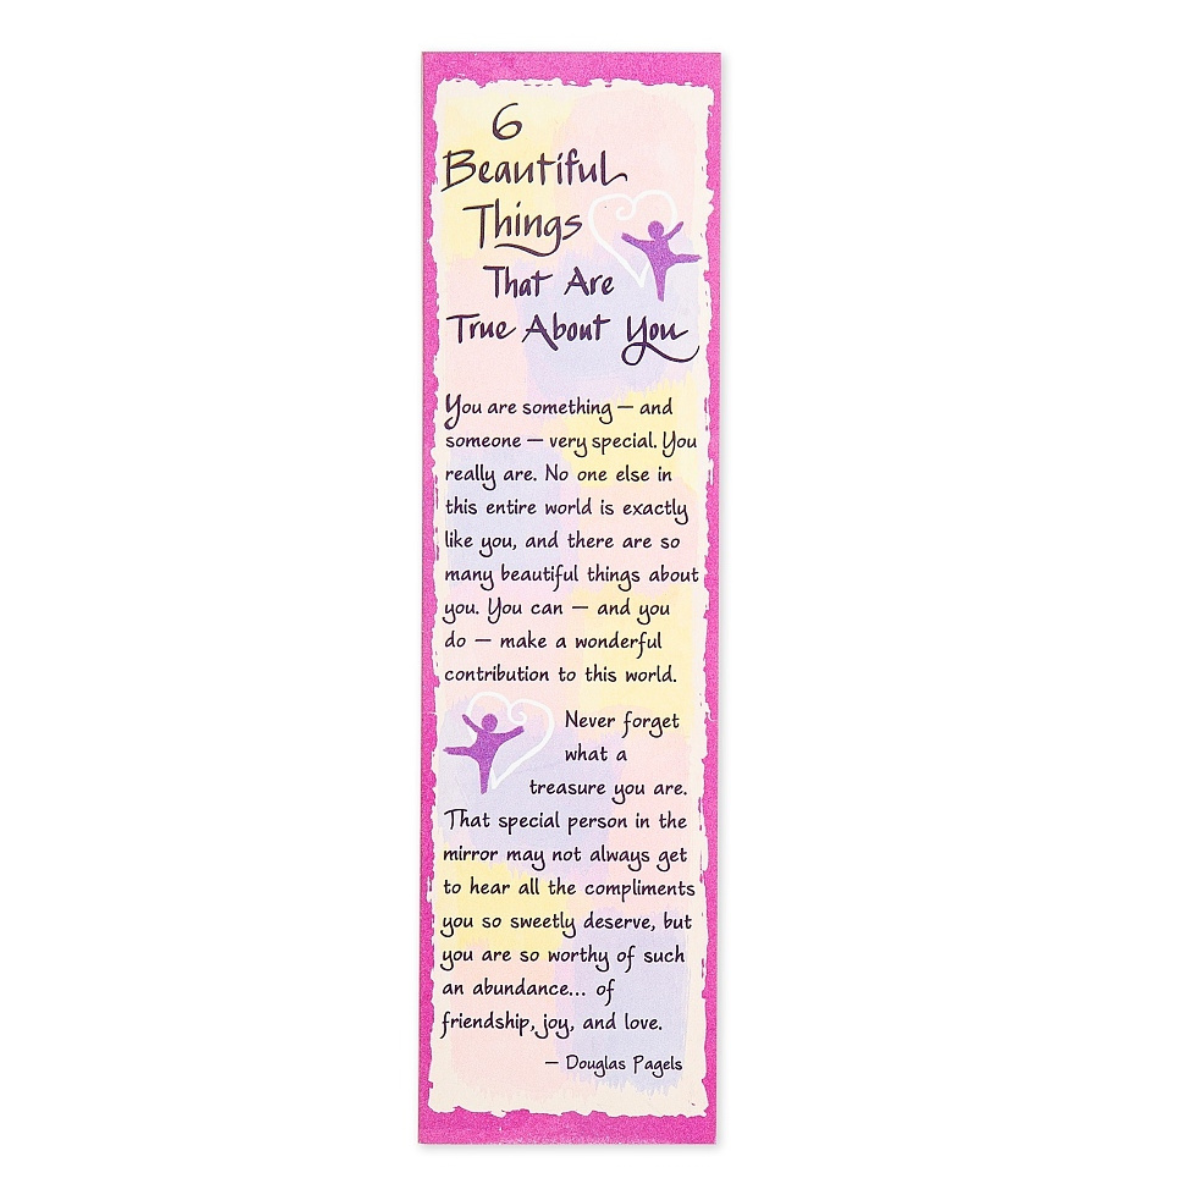 6
Beautiful
Things
That Are
True About You
You are something — and
someone — very special. You
really are. No one else in
this entire world is exactly
like you, and there are so
many beautiful things about
you. You can — and you
do — make a wonderful
contribution to this world.
Never forget
what a
treasure you are.
That special person in the
mirror may not always get
to hear all the compliments
you so sweetly deserve, but
you are so worthy of such
an abundance... of
friendship, joy, and love.
— Douglas Pagels